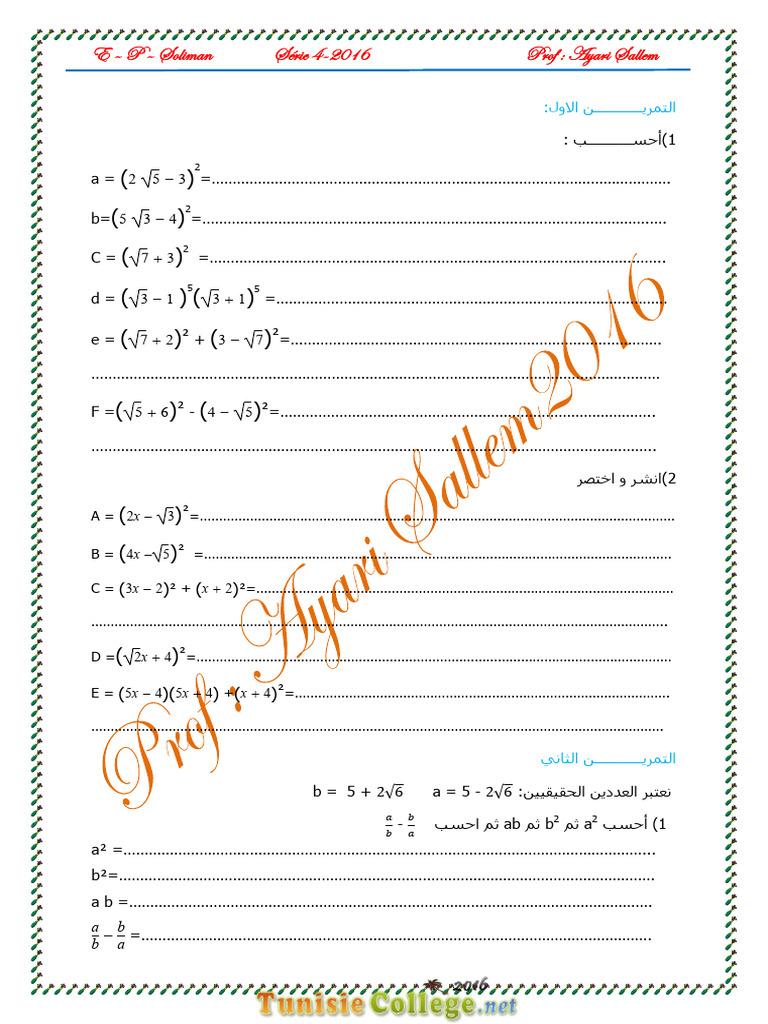 E ~ P ~ Soliman Série 4-2016 Prof : Ayari Sallem
التمريـــــــــــن الاول:
1)أحســـــــــــب :
a = (2 √5 − 3)²=..........................................................................................
b=(5 √3 − 4)²=..........................................................................................
C = (√7 + 3)² =..........................................................................................
d = (√3 − 1 )⁵(√3 + 1)⁵ =..........................................................................
e = (√7 + 2)² + (3 − √7)²=........................................................................
..........................................................................................................
F =(√5 + 6)² - (4 − √5)²=..........................................................................
..........................................................................................................
2)انشر و اختصر
A = (2x − √3)²=..........................................................................................
B = (4x −√5)² =..........................................................................................
C = (3x − 2)² + (x + 2)²=..............................................................................
..........................................................................................................
D =(√2x + 4)²=..........................................................................................
E = (5x − 4)(5x + 4) +(x + 4)²=......................................................................
..........................................................................................................
التمريـــــــــــن الثاني
نعتبر العددين الحقيقيين: a = 5 - 2√6 b = 5 + 2√6
1) أحسب a² ثم b² ثم ab ثم احسب a/b - b/a
a² =..........................................................................................................
b²=..........................................................................................................
a b =........................................................................................................
a/b − b/a =..................................................................................................
Prof : Ayari Sallem 2016
2016
TunisieCollege.net